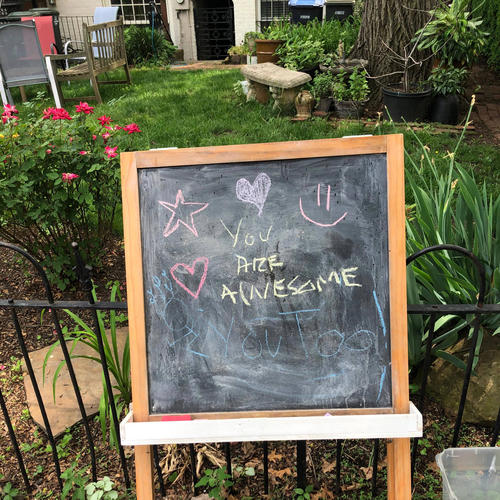 You
ARE
AWESOME
You Too